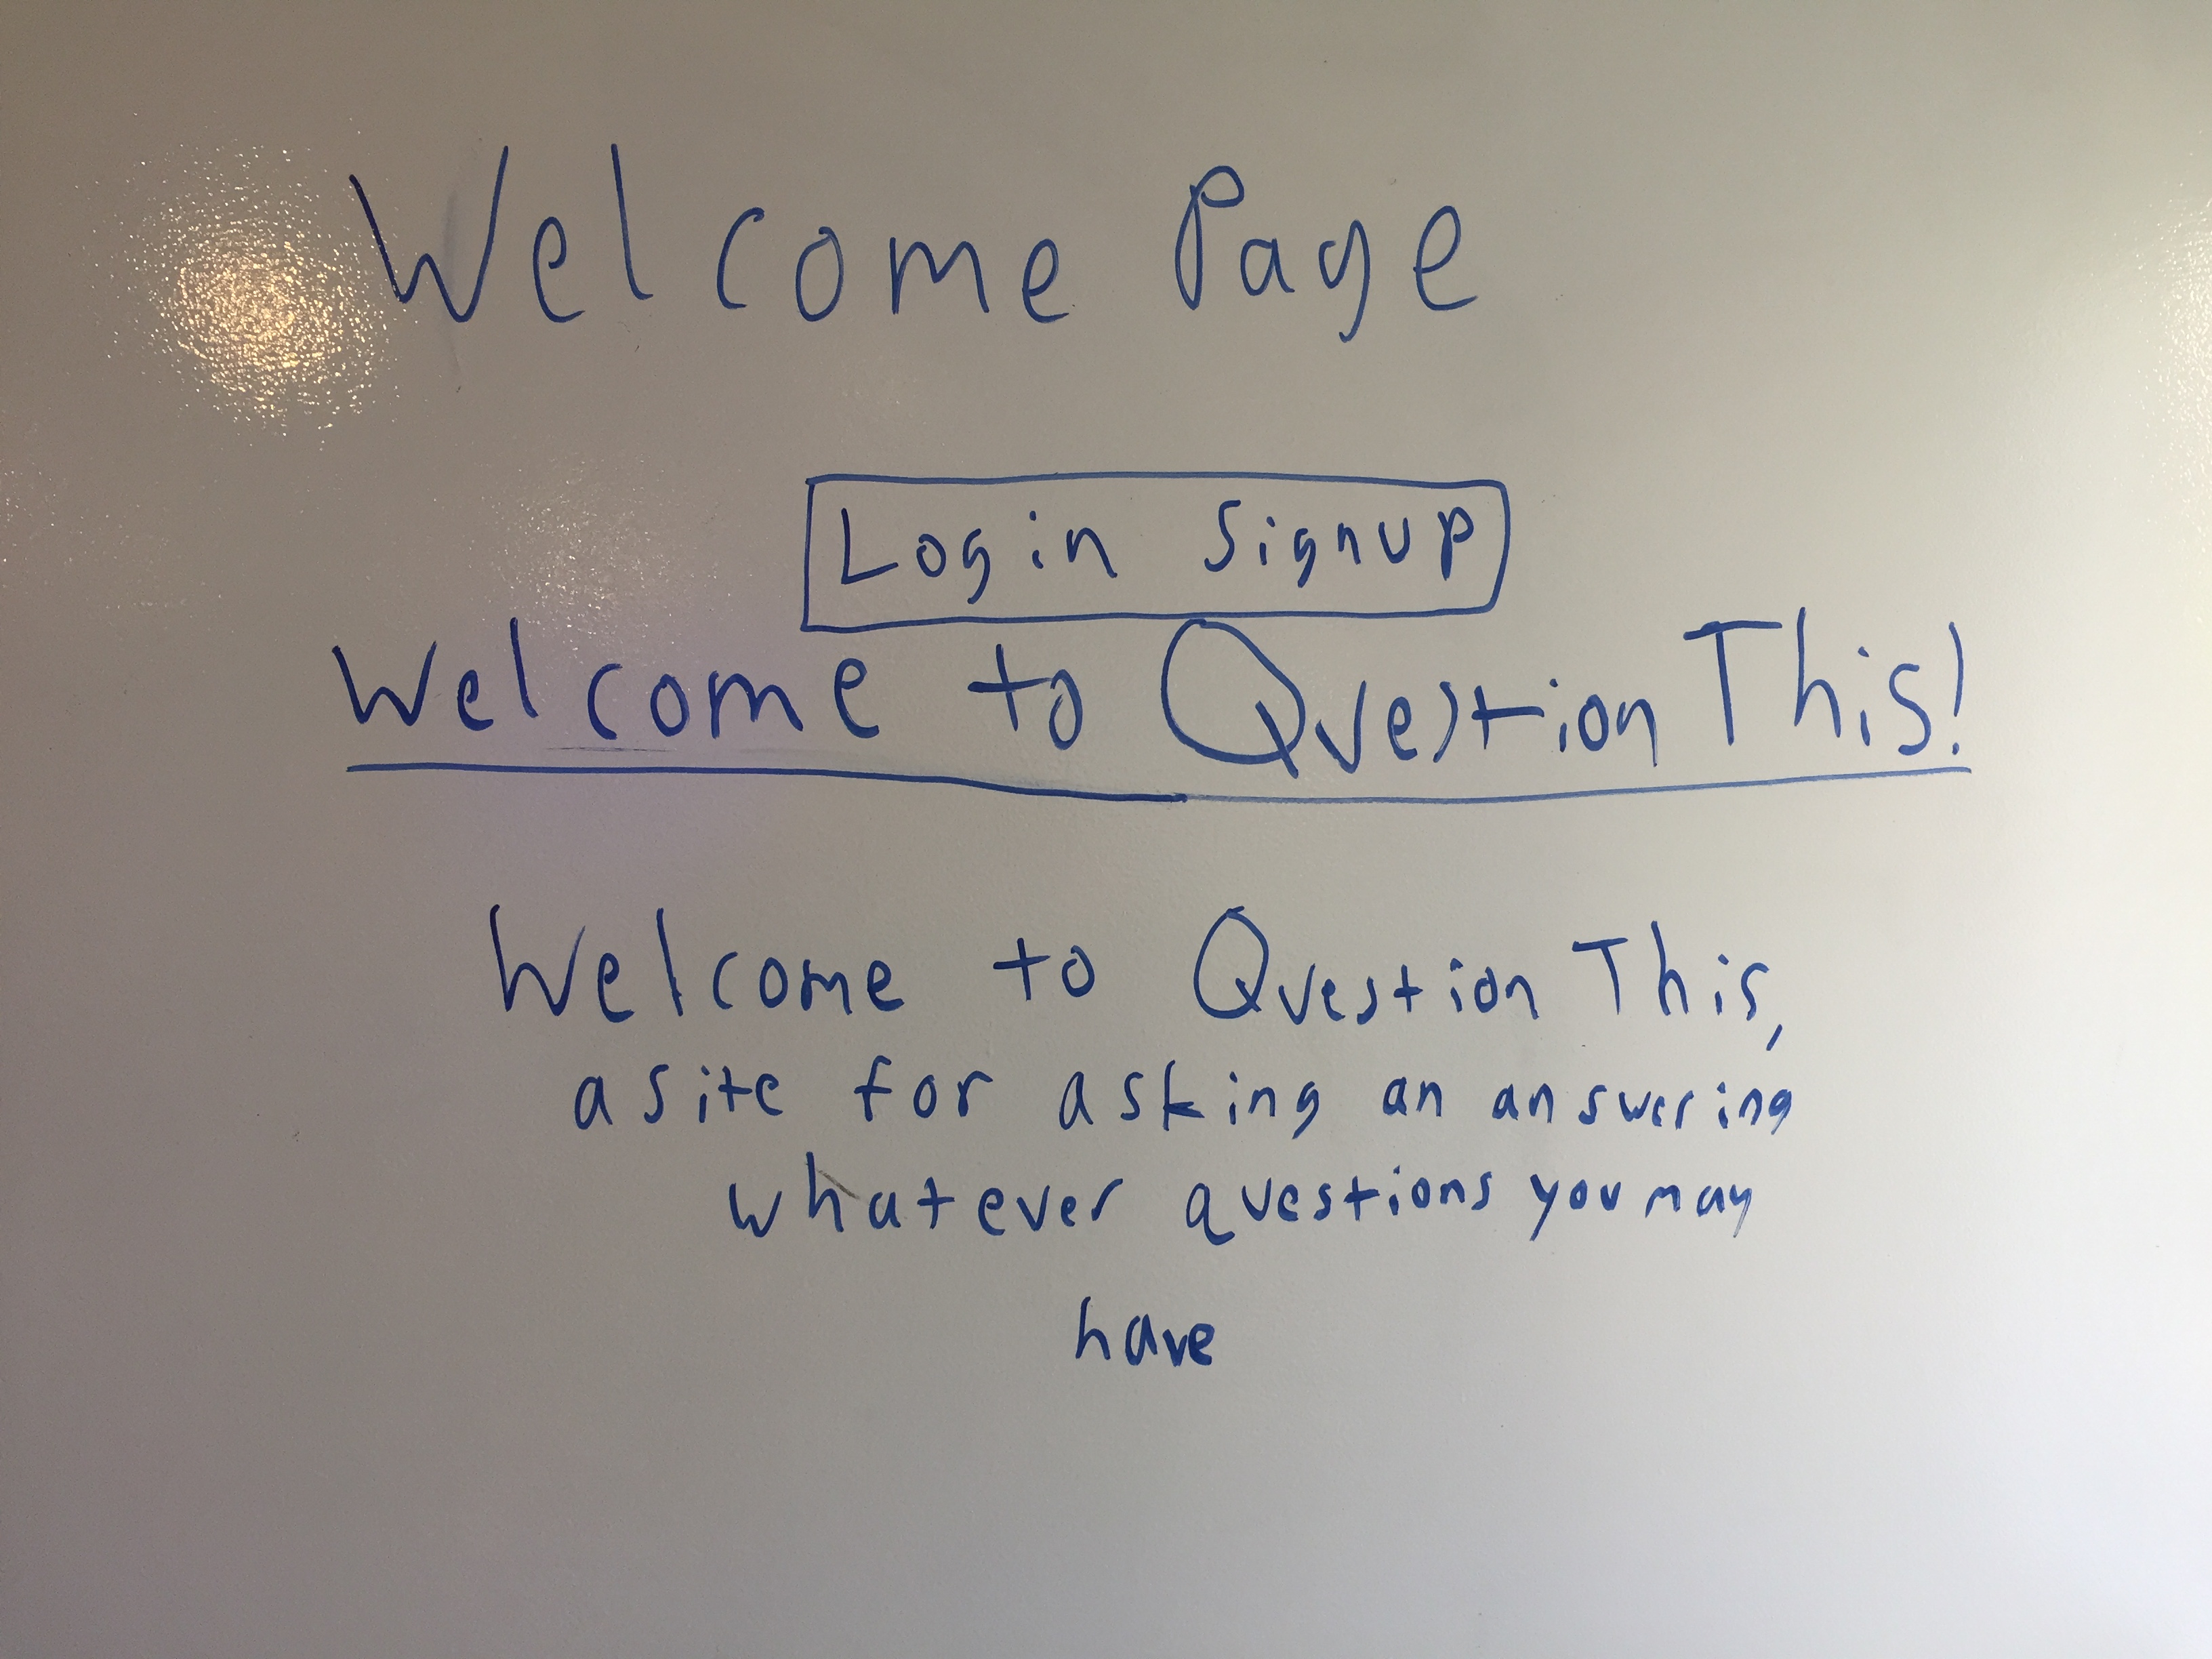 Welcome Page
Login Signup
Welcome to Question This!
Welcome to Question This,
a site for asking an answering
whatever questions you may
have